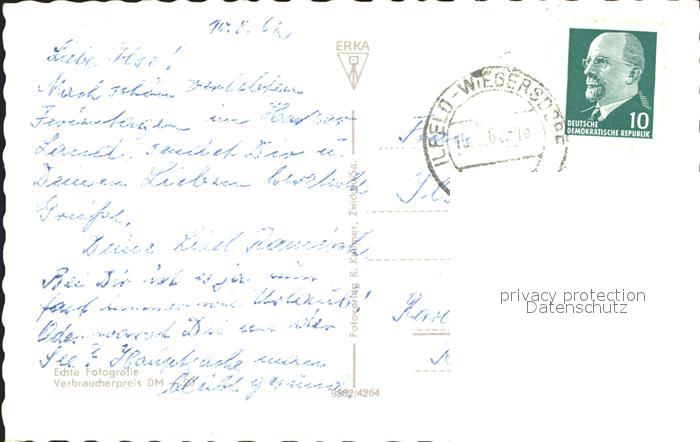 Liebe Ilse!
Nach schön verlebten
Ferientagen im Harzer
Land, sendet Dir u.
Deinen Lieben herzliche
Grüße,
Deine Liesel
Bei Dir ist es ja nun
fast immer wie Urlaub!
Oder warst Du an der
See? Hauptsache man
bleibt gesund.
Echte Fotografie
Verbraucherpreis DM
ERKA
Fotoverlag R. Kallmer, Zwickau/Sa.
9382/4264
ILFELD-WIEGERSDORF
10
DEUTSCHE
DEMOKRATISCHE REPUBLIK
privacy protection
Datenschutz